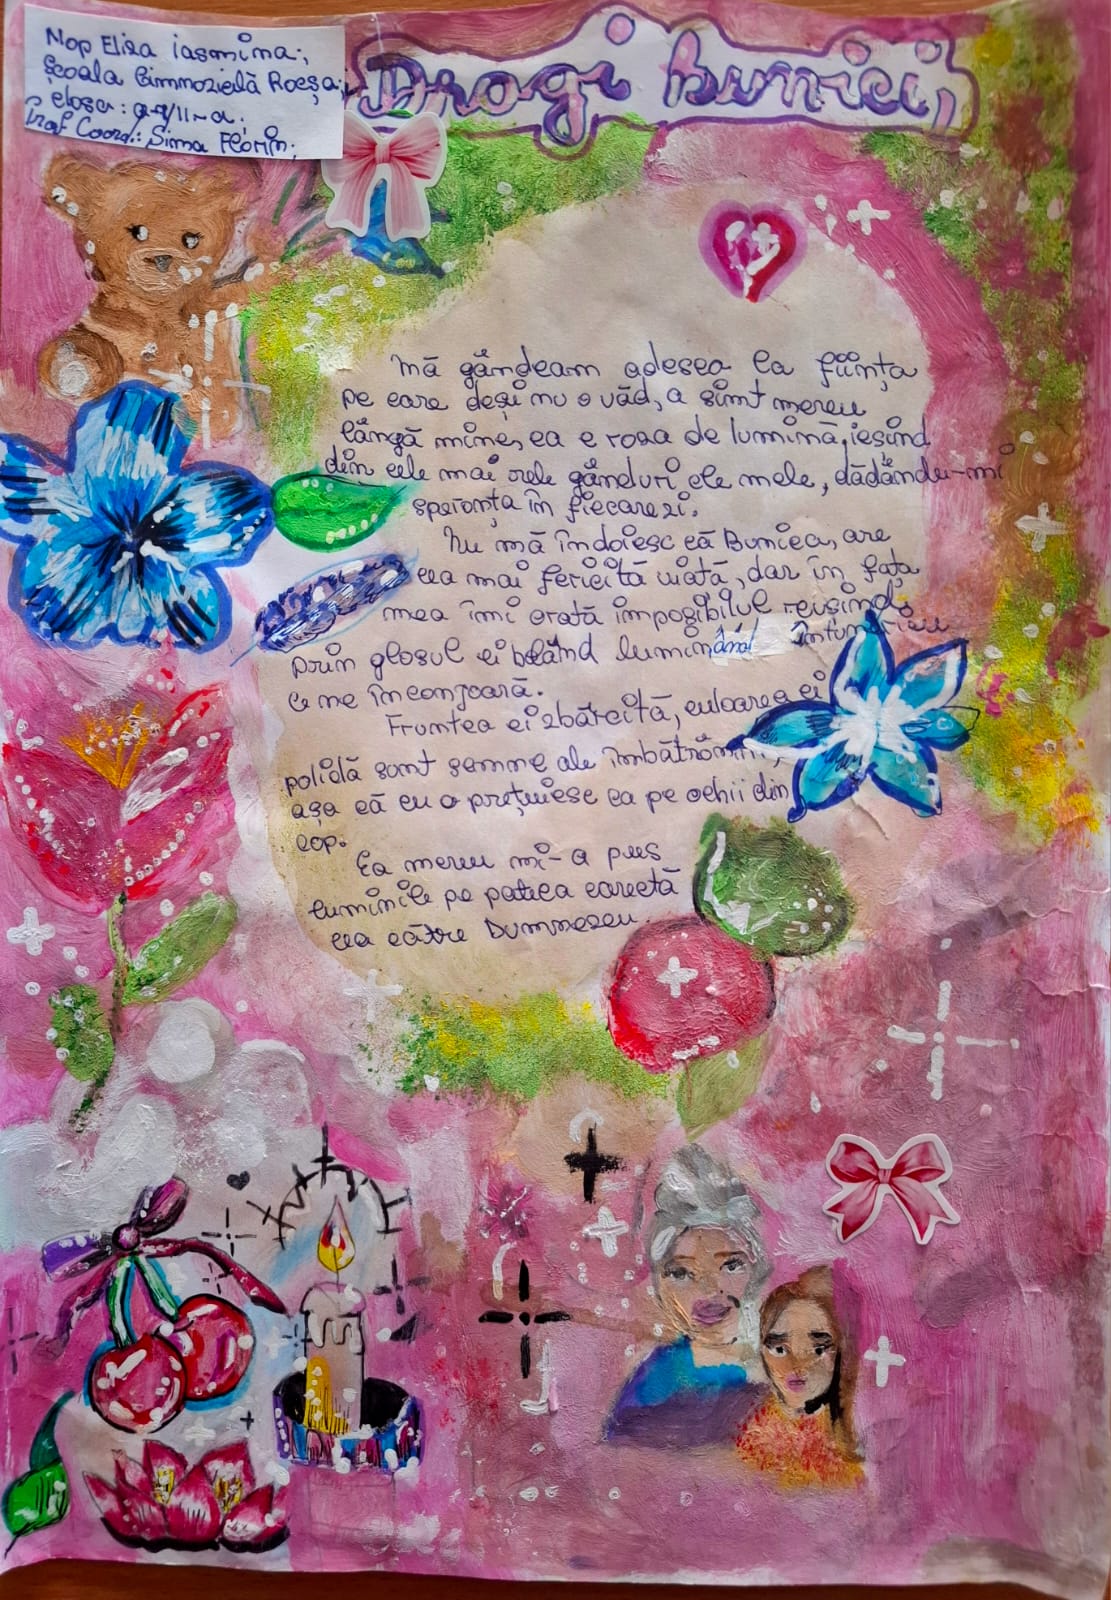 Pop Eliza iasmina;
Școala Gimnazială Roeșa;
clasa: a-VII-a.
Prof Coord.: Sima Florin;
Dragi bunici,
Mă gândeam adesea la ființa
pe care deși nu o văd, a simt mereu
lângă mine, ea e raza de lumină, iesind
din cele mai rele gânduri ale mele, dădându-mi
speranța în fiecare zi.
Nu mă îndoiesc că Bunica, are
cea mai fericită viată, dar în fața
mea îmi arată impogibilul reusind,
prin glasul ei blând luminând întunericu
ce ne înconjoară.
Fruntea ei zbârcită, culoarea ei
palidă sant semne ale îmbătrânirii,
așa că eu o prețuiesc ca pe ochii din
cap.
Ea mereu mi-a pus
luminile pe patica corectă
cea către Dumnezeu.